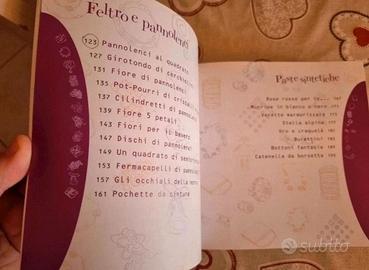 Feltro e pannolenci
123 Pannolenci al quadrato
127 Girotondo di cerchi
131 Fiore di pannolenci
135 Pot-Pourri di cristalli
137 Cilindretti di pannolenci
139 Fiore 5 petali
143 Fiori per il bavero
147 Dischi di pannolenci
149 Un quadrato di
153 Fermacapelli di
157 Gli occhiali della nonna
161 Pochette da
Paste sintetiche
Rose rosse per te...
Murrine in bianco e nero
Perette marmorizzate
Stella alpina
Oro e craquelé
Burattini
Bottoni fantasia
Catenella da borsetta
subito